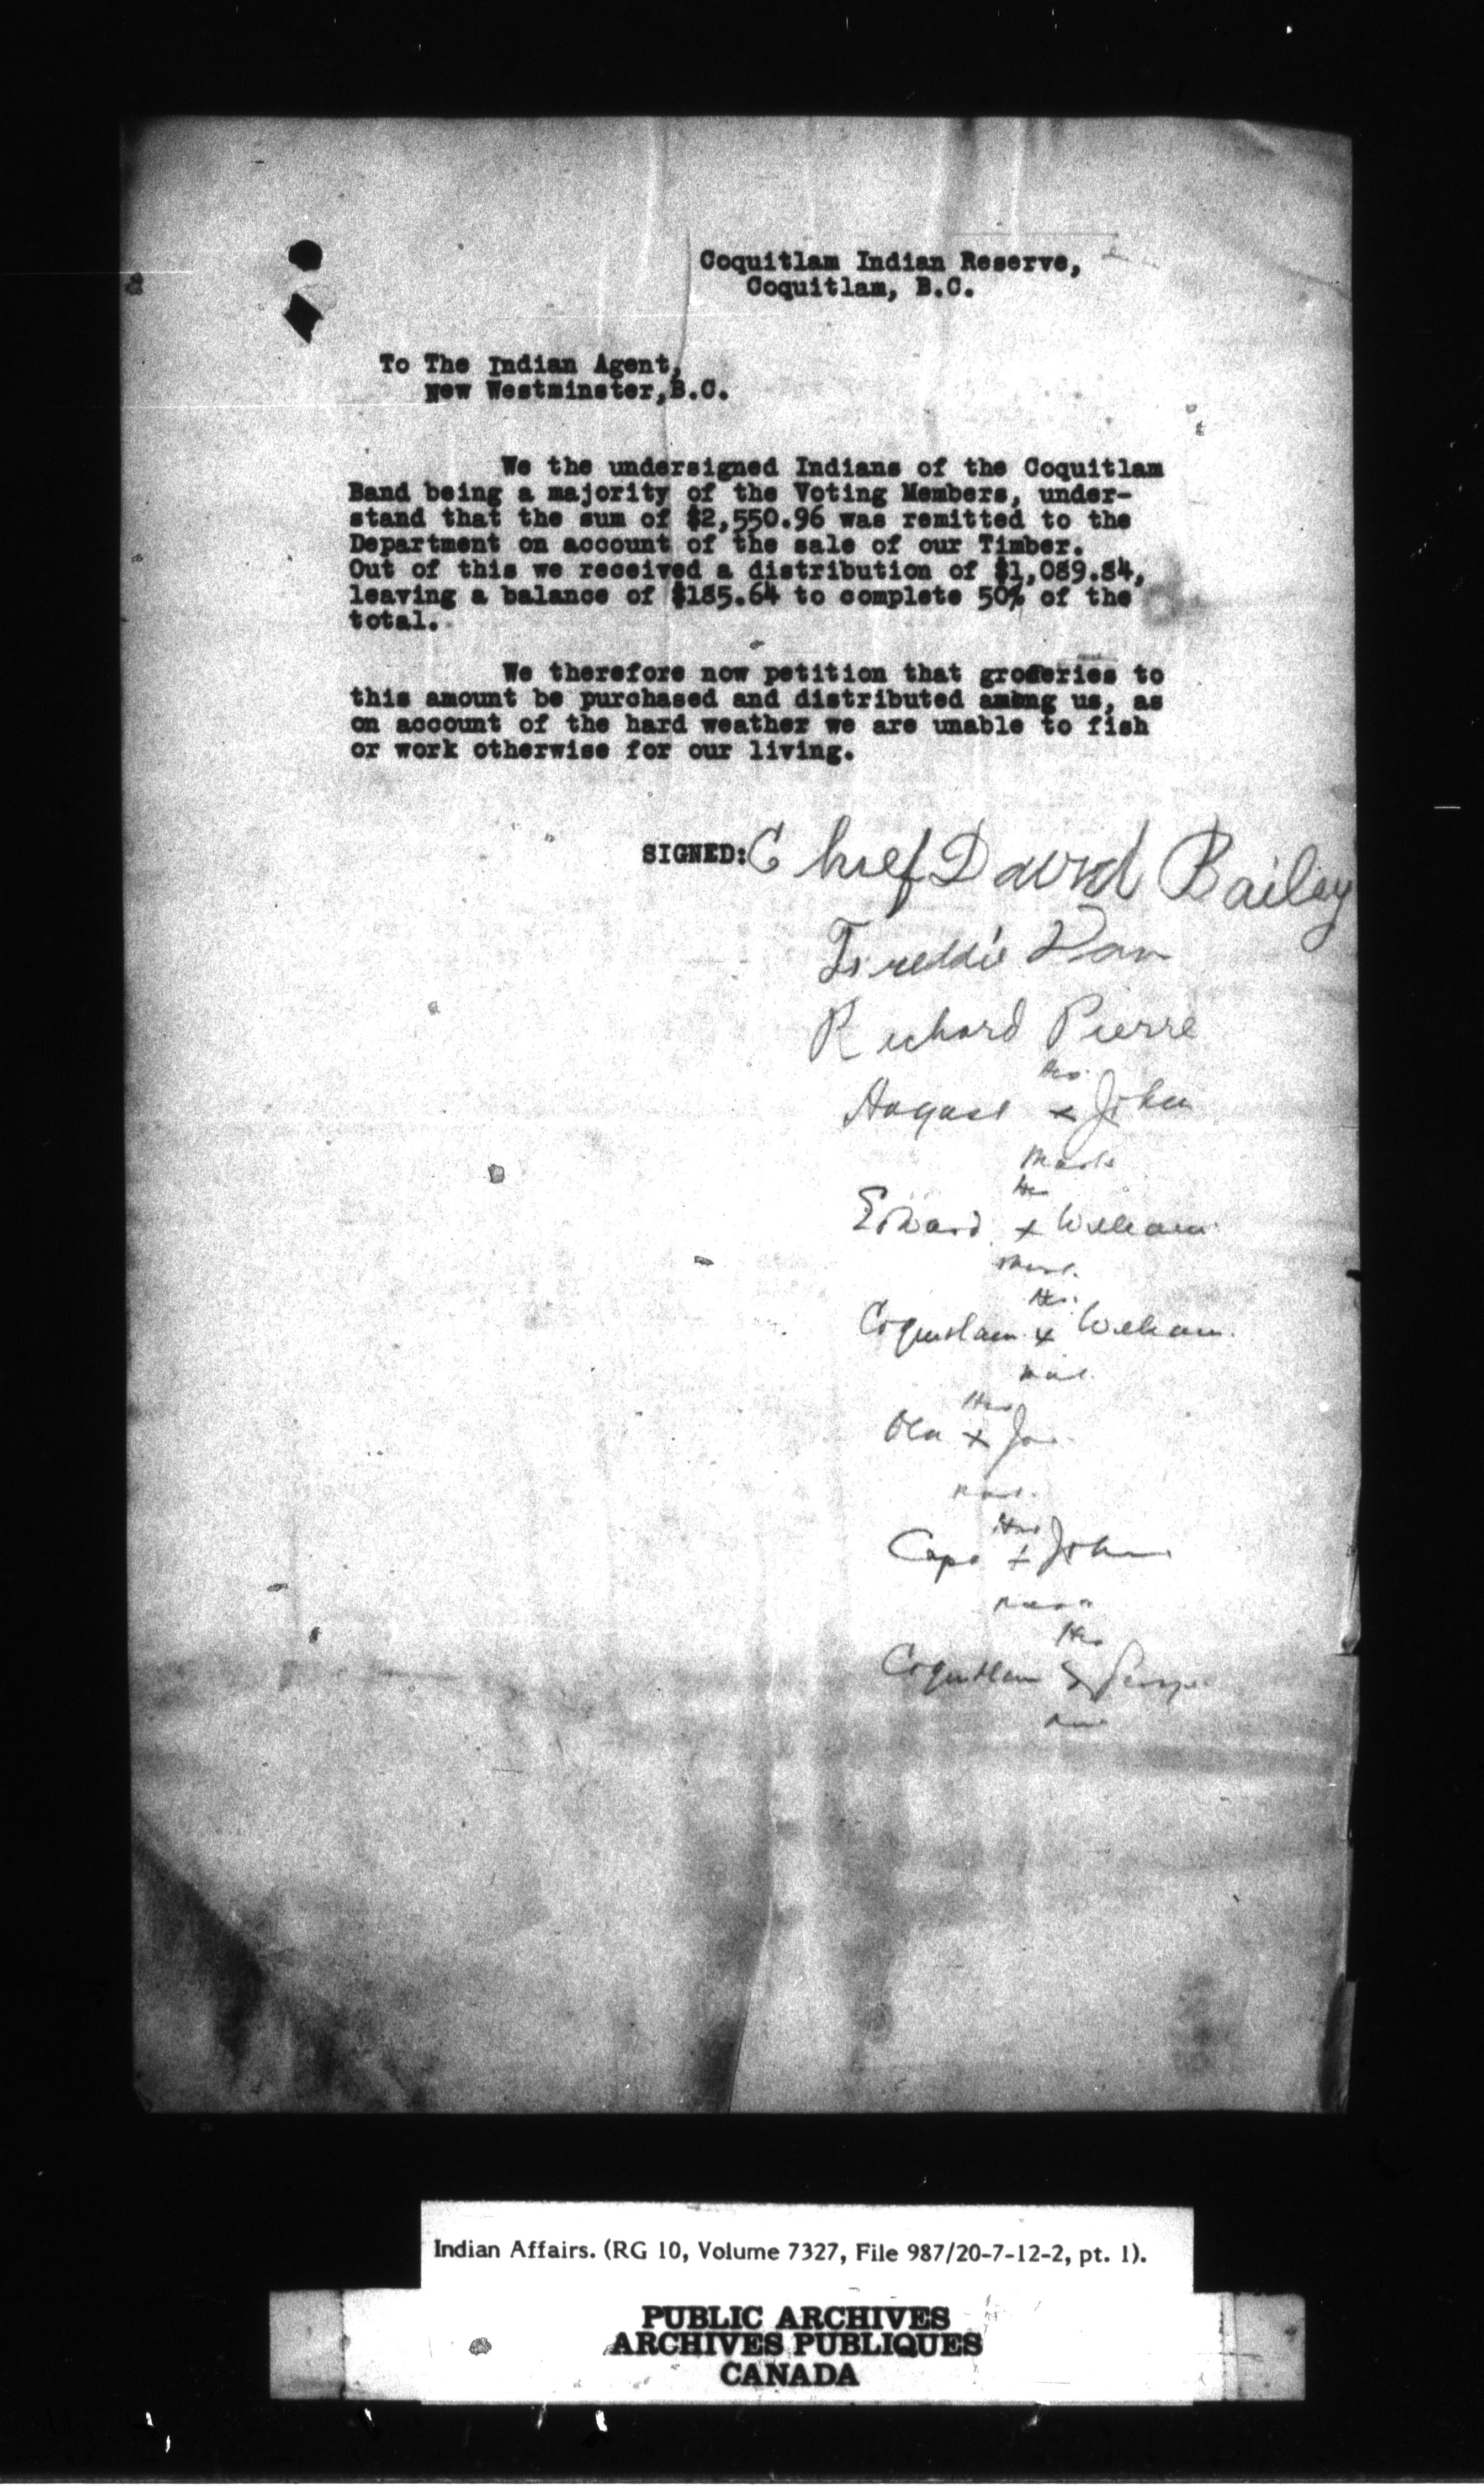 Coquitlam Indian Reserve,
Coquitlam, B.C.
To The Indian Agent,
New Westminster, B.C.
We the undersigned Indians of the Coquitlam
Band being a majority of the Voting Members, under-
stand that the sum of $2,550.96 was remitted to the
Department on account of the sale of our Timber.
Out of this we received a distribution of $1,089.84,
leaving a balance of $185.64 to complete 50% of the
total.
We therefore now petition that groceries to
this amount be purchased and distributed among us, as
on account of the hard weather we are unable to fish
or work otherwise for our living.
SIGNED: Chief David Bailey
Freddie Dan
Richard Pierre
His
August x John
Mark
His
Edward x William
Mark.
His
Coquitlam x William.
Mark.
His
x Joe
Mark.
His
x John
Mark
His
Coquitlam x
Mark
Indian Affairs. (RG 10, Volume 7327, File 987/20-7-12-2, pt. 1).
PUBLIC ARCHIVES
ARCHIVES PUBLIQUES
CANADA